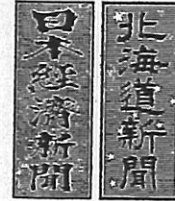 北海道新聞
日本経済新聞